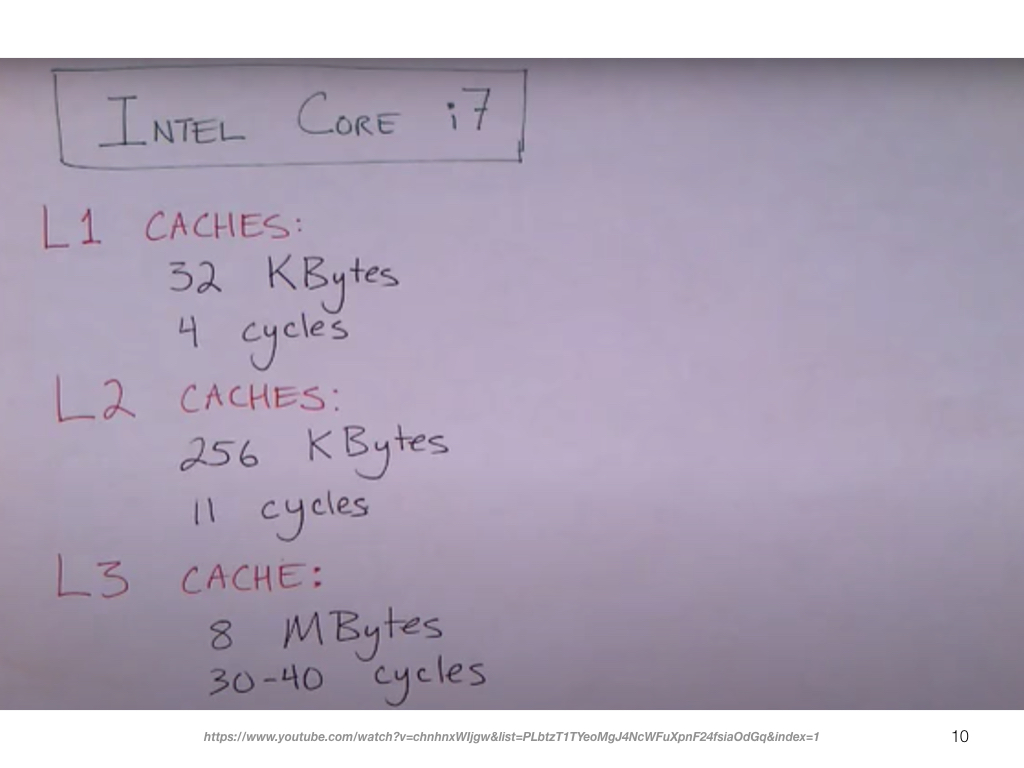 INTEL CORE i7
L1 CACHES:
32 KBytes
4 cycles
L2 CACHES:
256 KBytes
11 cycles
L3 CACHE:
8 MBytes
30-40 cycles
https://www.youtube.com/watch?v=chnhnxWIjgw&list=PLbtzT1TYeoMgJ4NcWFuXpnF24fsiaOdGq&index=1
10